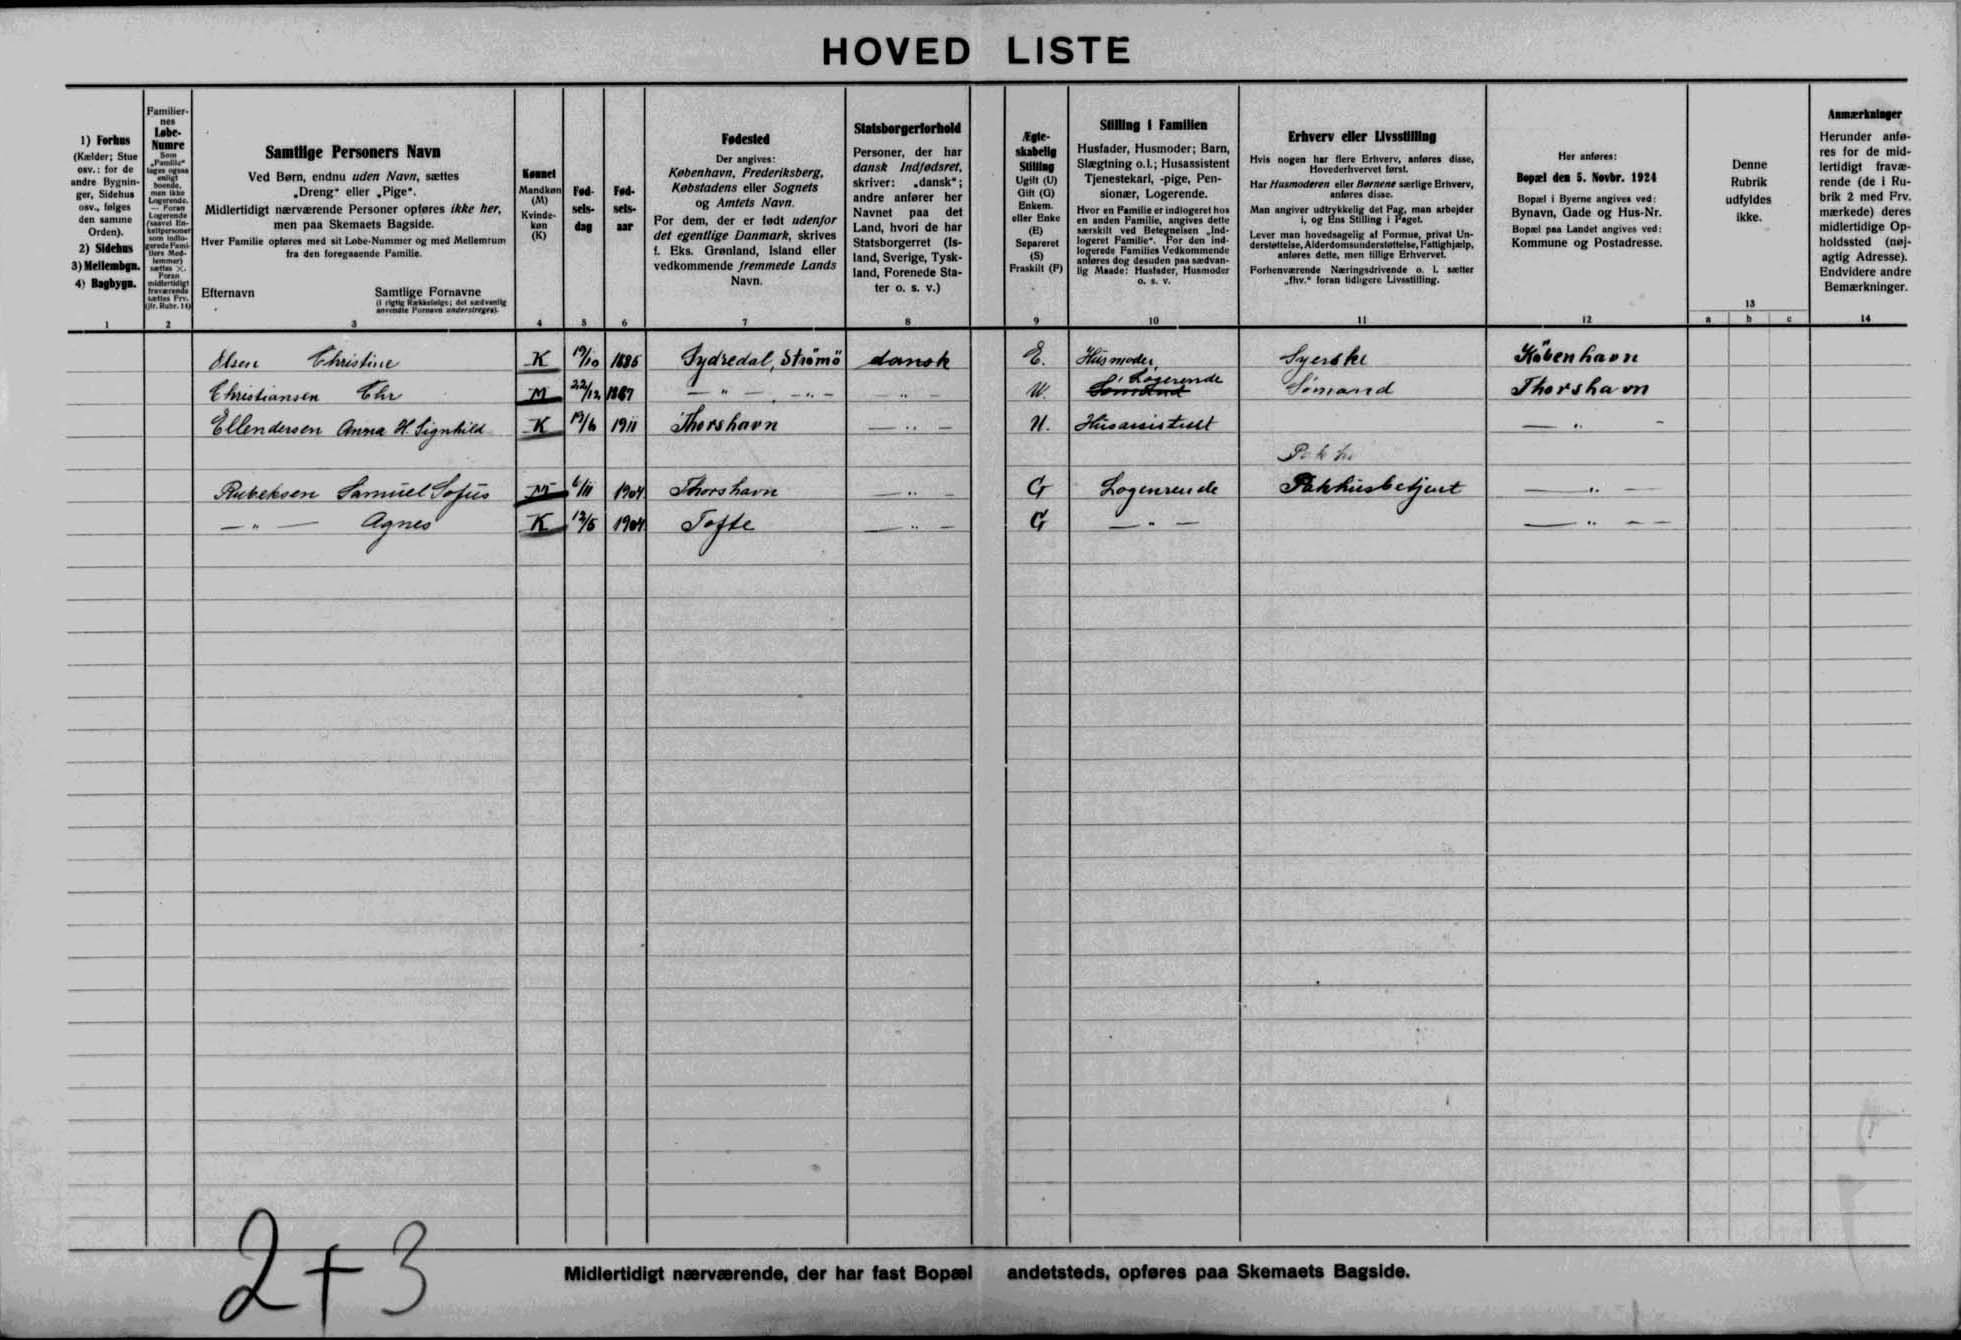 HOVED LISTE
1) Forhus
(Kælder; Stue
osv.: for de
andre Bygnin-
ger, Sidehus
osv., følges
den samme
Orden).
2) Sidehus
3) Mellembgn.
4) Bagbygn.
1
Familier-
nes
Løbe-
Numre
Som
„Familie“
tages ogsaa
enligt
boende,
men ikke
Logerende.
— Foran
Logerende
(saavel En-
keltpersoner
som indlo-
gerede Fami-
liers Med-
lemmer)
sættes ×.
Foran
midlertidigt
fraværende
sættes Frv.
(jfr. Rubr. 14)
2
Samtlige Personers Navn
Ved Børn, endnu uden Navn, sættes
„Dreng“ eller „Pige“.
Midlertidigt nærværende Personer opføres ikke her,
men paa Skemaets Bagside.
Hver Familie opføres med sit Løbe-Nummer og med Mellemrum
fra den foregaaende Familie.
Efternavn Samtlige Fornavne
(i rigtig Rækkefølge; det sædvanlig
anvendte Fornavn understreges).
3
Kønnet
Mandkøn
(M)
Kvinde-
køn
(K)
4
Fød-
sels-
dag
5
Fød-
sels-
aar
6
Fødested
Der angives:
København, Frederiksberg,
Købstadens eller Sognets
og Amtets Navn.
For dem, der er født udenfor
det egentlige Danmark, skrives
f. Eks. Grønland, Island eller
vedkommende fremmede Lands
Navn.
7
Statsborgerforhold
Personer, der har
dansk Indfødsret,
skriver: „dansk“;
andre anfører her
Navnet paa det
Land, hvori de har
Statsborgerret (Is-
land, Sverige, Tysk-
land, Forenede Sta-
ter o. s. v.)
8
Ægte-
skabelig
Stilling
Ugift (U)
Gift (G)
Enkem.
eller Enke
(E)
Separeret
(S)
Fraskilt (F)
9
Stilling i Familien
Husfader, Husmoder; Barn,
Slægtning o.l.; Husassistent
Tjenestekarl, -pige, Pen-
sionær, Logerende.
Hvor en Familie er indlogeret hos
en anden Familie, angives dette
særskilt ved Betegnelsen „Ind-
logeret Familie“. For den ind-
logerede Families Vedkommende
anføres dog desuden paa sædvan-
lig Maade: Husfader, Husmoder
o. s. v.
10
Erhverv eller Livsstilling
Hvis nogen har flere Erhverv, anføres disse,
Hovederhvervet først.
Har Husmoderen eller Børnene særlige Erhverv,
anføres disse.
Man angiver udtrykkelig det Fag, man arbejder
i, og Ens Stilling i Faget.
Lever man hovedsagelig af Formue, privat Un-
derstøttelse, Alderdomsunderstøttelse, Fattighjælp,
anføres dette, men tillige Erhvervet.
Forhenværende Næringsdrivende o. l. sætter
„fhv.“ foran tidligere Livsstilling.
11
Her anføres:
Bopæl den 5. Novbr. 1924
Bopæl i Byerne angives ved:
Bynavn, Gade og Hus-Nr.
Bopæl paa Landet angives ved:
Kommune og Postadresse.
12
Denne
Rubrik
udfyldes
ikke.
13
a b c
Anmærkninger
Herunder anfø-
res for de mid-
lertidigt fravæ-
rende (de i Ru-
brik 2 med Frv.
mærkede) deres
midlertidige Op-
holdssted (nøj-
agtig Adresse).
Endvidere andre
Bemærkninger.
14
Olsen Christine K 19/10 1886 Sydredal, Strömö dansk E. Husmoder Syerske København
Christiansen Chr M 22/12 1867 — " — , — " — — " — U. Sömand Logerende Sömand Thorshavn
Ellendersen Anna H. Signhild K 19/6 1911 Thorshavn — " — U. Husassistent — " —
Rubeksen Samuel Sofus M 6/11 1904 Thorshavn — " — G Logenrende Pakhusbetjent — " —
— " — Agnes K 12/5 1904 Tofte — " — G — " — — " —
2+3
Midlertidigt nærværende, der har fast Bopæl andetsteds, opføres paa Skemaets Bagside.